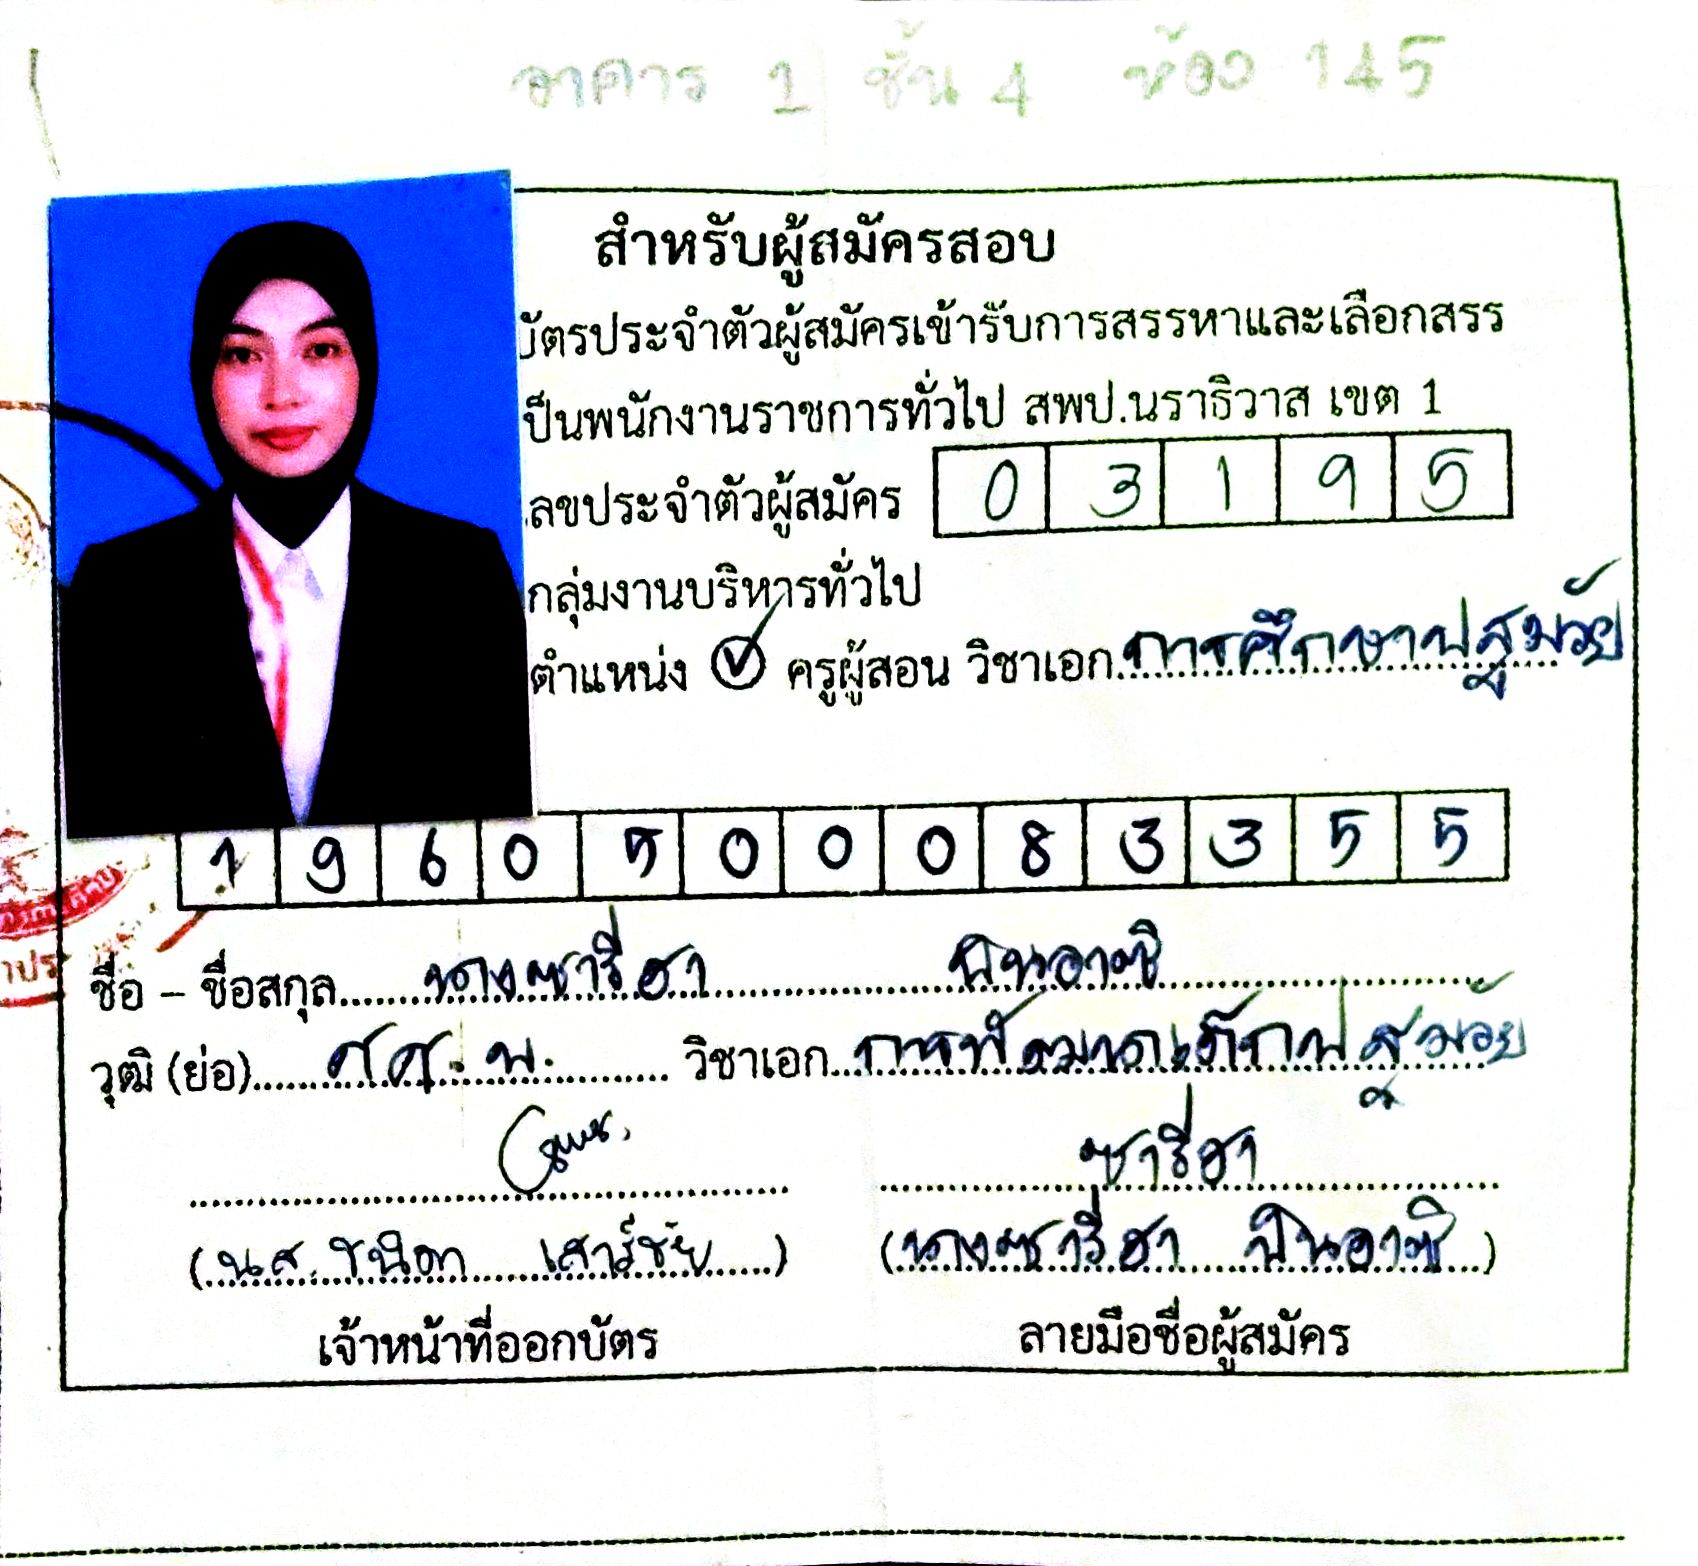 อาคาร 1 ชั้น 4 ห้อง 145
สำหรับผู้สมัครสอบ
บัตรประจำตัวผู้สมัครเข้ารับการสรรหาและเลือกสรร
เป็นพนักงานราชการทั่วไป สพป.นราธิวาส เขต 1
เลขประจำตัวผู้สมัคร 0 3 1 9 5
กลุ่มงานบริหารทั่วไป
ตำแหน่ง ครูผู้สอน วิชาเอก การศึกษาปฐมวัย
1 9 6 0 5 0 0 0 8 3 3 5 5
ชื่อ – ชื่อสกุล นางซารีฮา
วุฒิ (ย่อ) ศศ.บ. วิชาเอก การพัฒนาเด็กปฐมวัย
ซารีฮา
(น.ส. เสาร์ชัย) (นางซารีฮา)
เจ้าหน้าที่ออกบัตร ลายมือชื่อผู้สมัคร